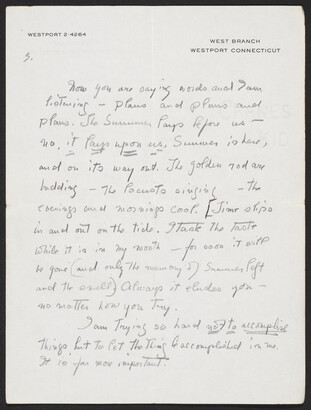 WESTPORT 2-4264
WEST BRANCH
WESTPORT CONNECTICUT
5.
Now you are saying words and I am
listening – plans and plans and
plans. The Summer lays before us –
no, it lays upon us. Summer is here,
and on its way out. The golden rod are
budding – the locusts singing – the
evenings and mornings cool. [Time slips
in and out on the tide. I taste the taste
while it is in my mouth – for soon it will
be gone (and only the memory of Summer left
and the smell) Always it eludes you –
no matter how you try.
I am trying so hard not to accomplish
things, but to let the thing be accomplished in me.
It is far more important.